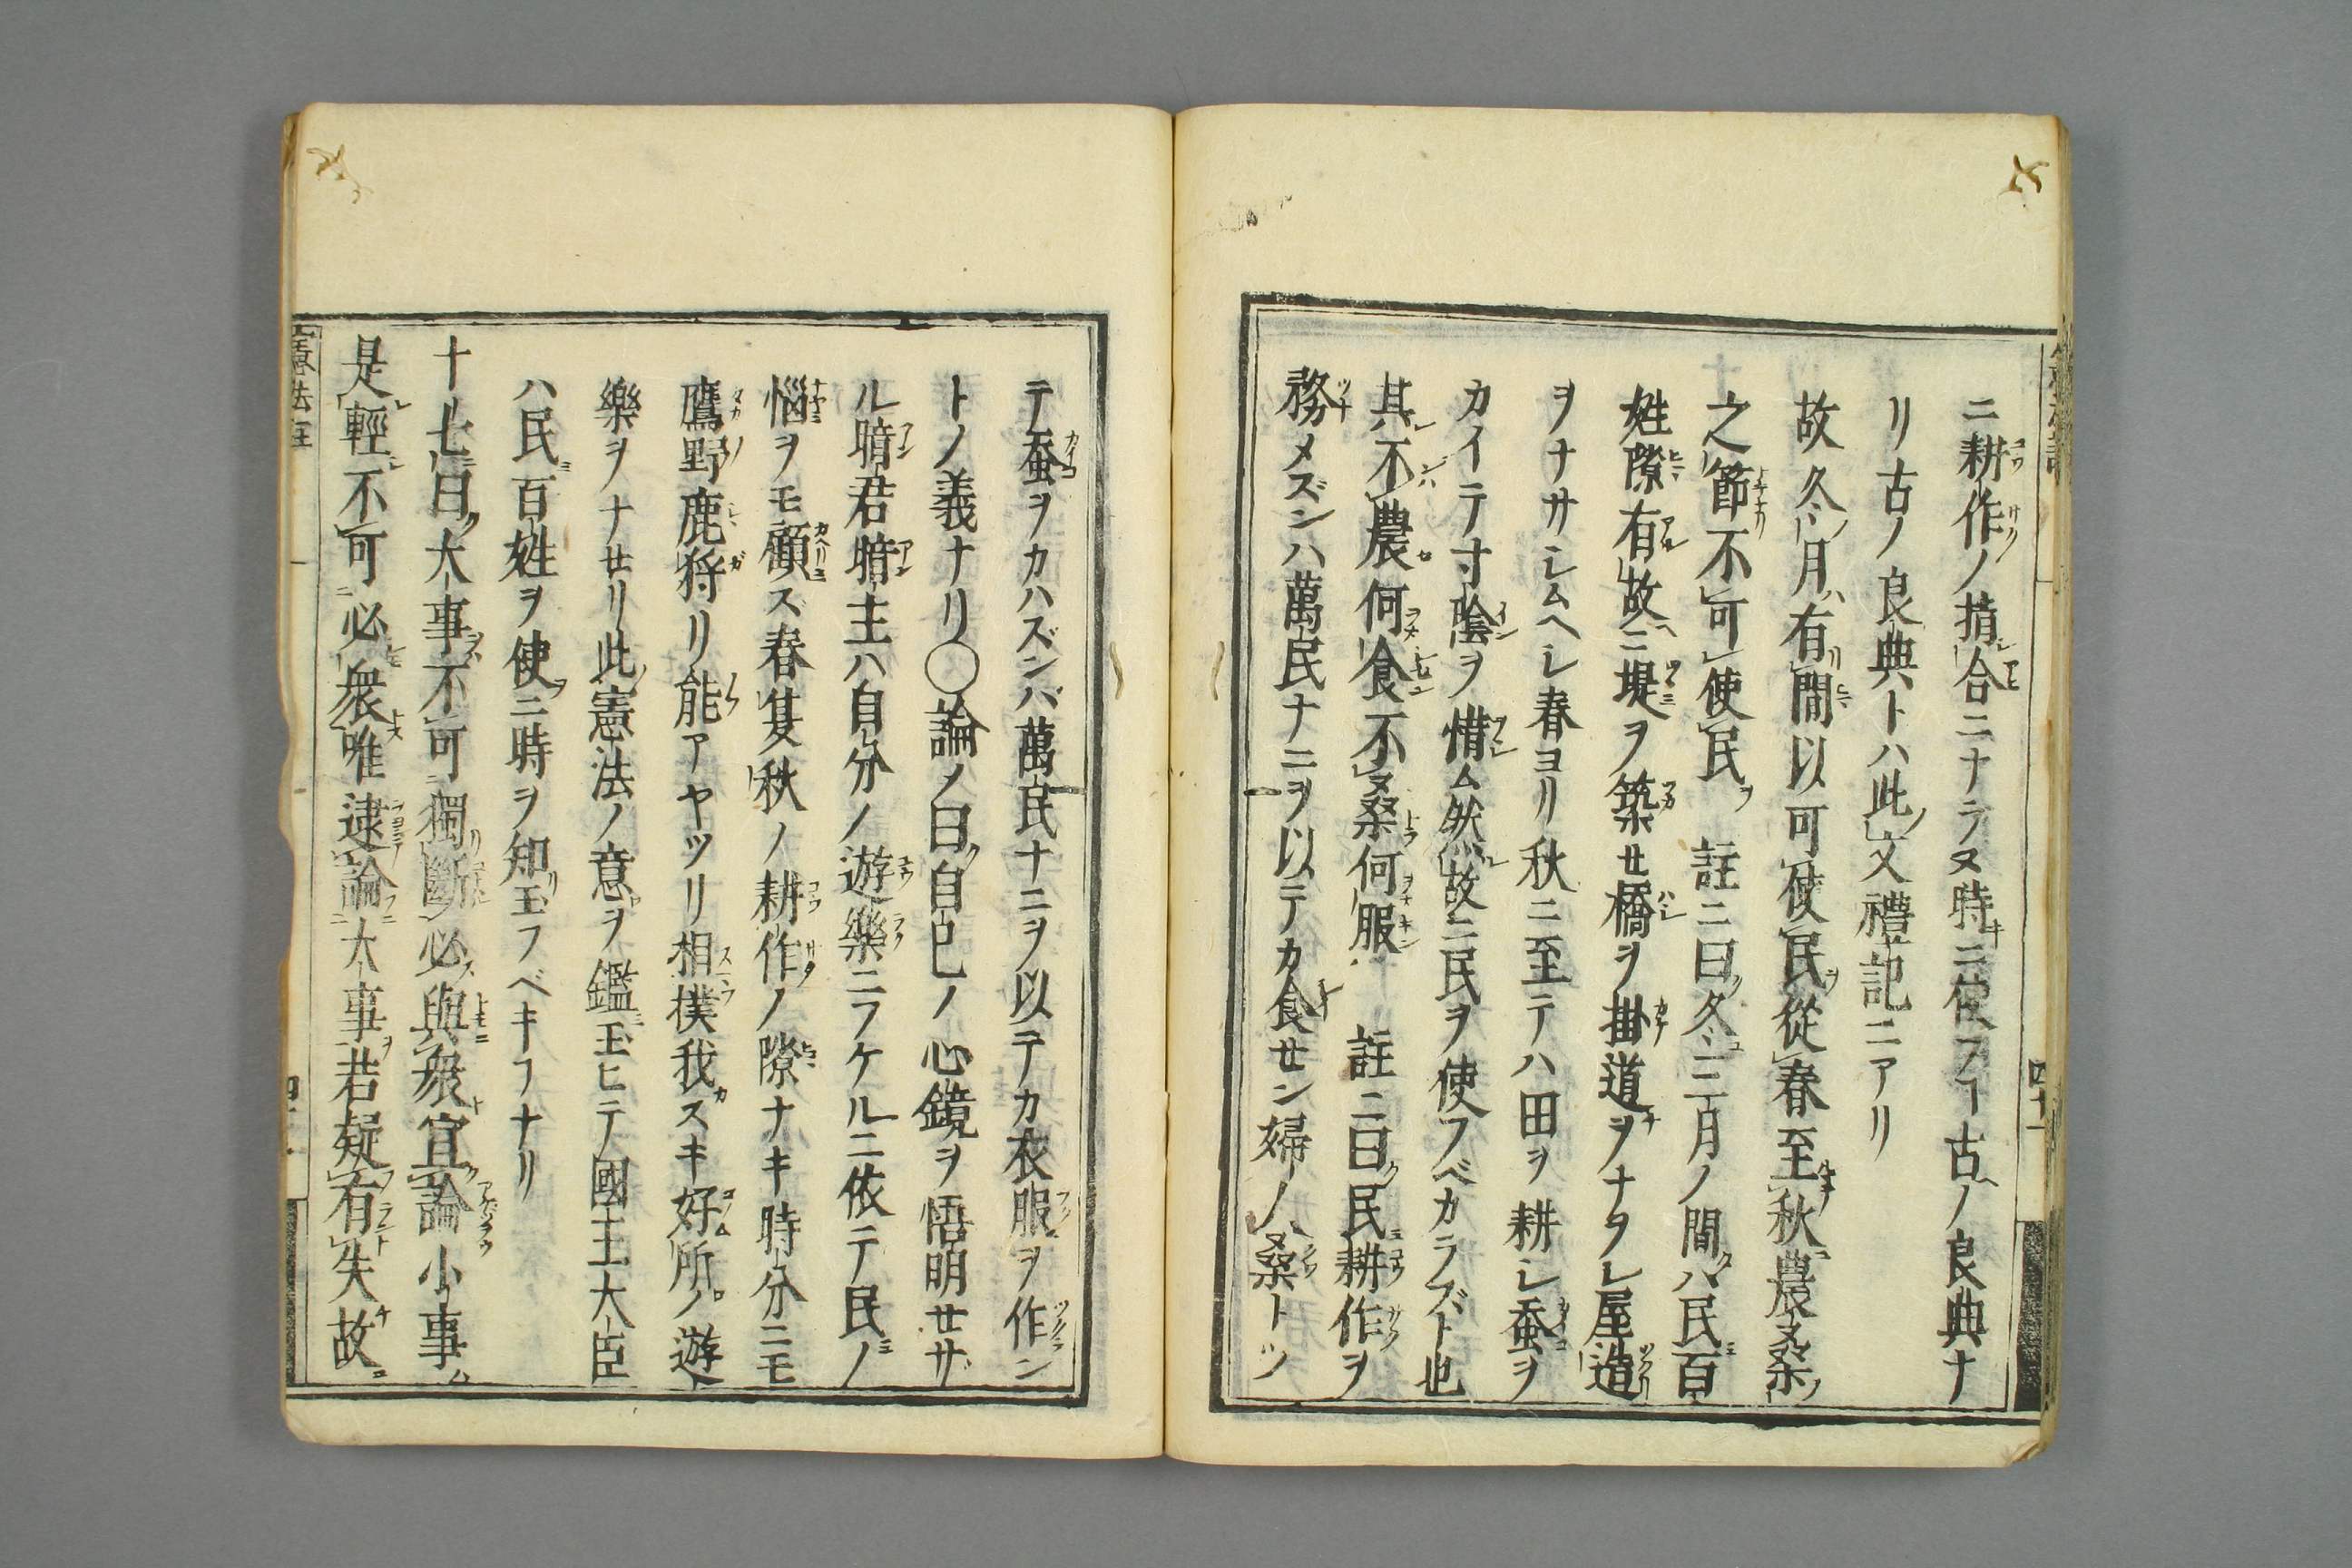 ニ耕作ノ指合ニナラヌ時ニ使フヿ古ノ良典ナ
リ古ノ良典トハ此文禮記ニアリ
故冬月有間以可使民從春至秋農桑
之節不可使民 註ニ曰冬三月ノ間ハ民百
姓隙有故ニ堤ヲ築セ橋ヲ掛道ヲナヲシ屋造
ヲナサシムヘシ春ヨリ秋ニ至テハ田ヲ耕シ蚕ヲ
カイテ寸陰ヲ惜ム然故ニ民ヲ使フベカラズト也
其不農何食不桑何服 註ニ曰民耕作ヲ
務メズンハ萬民ナニヲ以テカ食セン婦人桑トツ
テ蚕ヲカハズンバ萬民ナニヲ以テカ衣服ヲ作ン
トノ義ナリ〇論メ曰自己ノ心鏡ヲ悟明セザ
ル暗君暗主ハ自分ノ遊樂ニフケルニ依テ民ノ
惱ヲモ顧ス春夏秋ノ耕作ノ隙ナキ時分ニモ
鷹野鹿狩リ能アヤツリ相撲我スキ好所ノ遊
樂ヲナセリ此憲法ノ意ヲ鑑玉ヒテ國王大臣
ハ民百姓ヲ使ニ時ヲ知玉フベキヿナリ
十七曰大事不可獨斷必與衆宜論小事
是輕不可必衆唯逮論大事若疑有失故